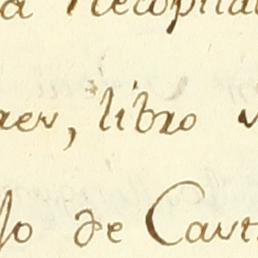 a Recopila
res, libro
so de Cast